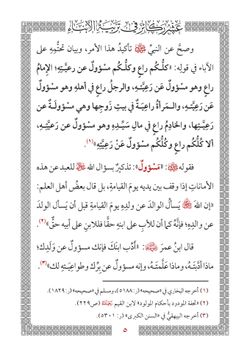 عشر ركائز في تربية الأبناء
وصحَّ عن النبيِّ ﷺ تأكيدُ هذا الأمر، وبيان تحتُّمِهِ على
الآباء في قوله: «كلُّكُم راعٍ وكلُّكُم مسؤولٌ عن رعيَّتِهِ؛ الإمامُ
راعٍ وهو مسؤولٌ عَن رَعِيَّتِهِ، والرجلُ راعٍ في أهلِهِ وهو مسؤولٌ
عَن رَعِيَّتِهِ، والمَرأةُ راعِيَةٌ في بيتِ زَوجِها وهي مسؤولَةٌ عن
رَعِيَّتِها، والخَادِمُ راعٍ في مالِ سَيِّدِهِ وهو مسؤولٌ عن رَعيَّتِهِ،
ألا كُلُّكُم راعٍ وكُلُّكُم مسؤولٌ عَنْ رَعِيَّتِهِ»(١).
فقوله ﷺ: «مَسْؤولٌ»: تذكيرٌ بسؤال الله ﷻ للعبد عن هذه
الأماناتِ إذا وقف بين يديه يومَ القيامةِ، بل قال بعضُ أهل العلم:
«إن الله ﷻ يَسألُ الوالدَ عن ولدِهِ يومَ القيامَةِ قبل أن يَسألَ الولدَ
عن والدِهِ؛ فإنَّه كما أن للأبِ على ابنِهِ حقًّا فللابنِ على أبيه حقٌّ»(٢).
قال ابنُ عمرَ ﷺ: «أدِّب ابنَكَ فإنك مسؤولٌ عن وَلَدِك؛
ماذا أدَّبتَهُ، وماذا عَلَّمتَهُ، وإنه مسؤولٌ عن بِرِّك وطواعِيَتِهِ لكَ»(٣).
(١) أخرجه البخاري في «صحيحه» (ر: ٥١٨٨)، ومسلم في «صحيحه» (ر: ١٨٢٩).
(٢) «تحفة المودود بأحكام المولود» لابن القيم (ص٢٢٩).
(٣) أخرجه البيهقيُّ في «السنن الكبرى» (ر: ٥٣٠١).
٥